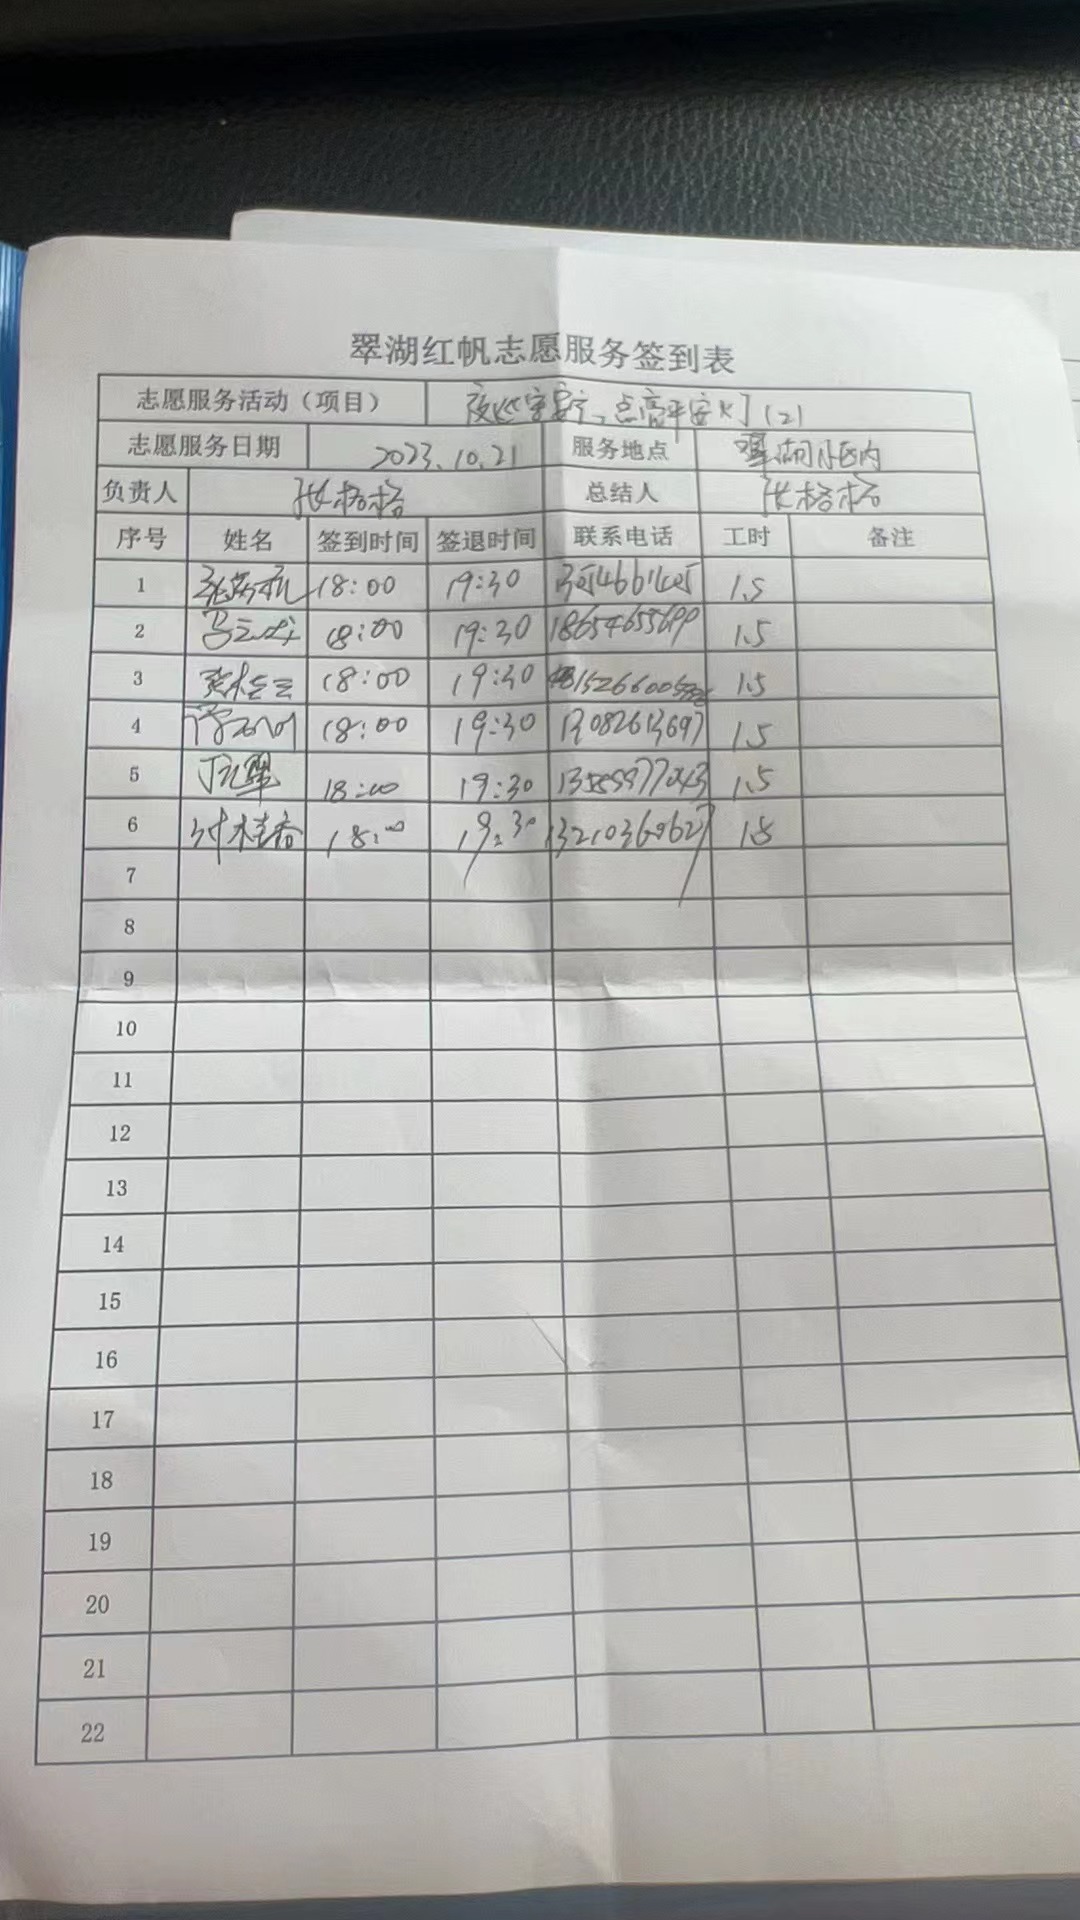 翠湖红帆志愿服务签到表
志愿服务活动（项目） 点亮平安灯（2）
志愿服务日期 2023.10.21 服务地点 翠湖小区内
负责人 张格格 总结人 张格格
序号 姓名 签到时间 签退时间 联系电话 工时 备注
1 18:00 19:30 1.5
2 18:00 19:30 18654655699 1.5
3 18:00 19:30 1.5
4 18:00 19:30 13082613697 1.5
5 18:00 19:30 1.5
6 18:00 19:30 13210360627 1.5
7
8
9
10
11
12
13
14
15
16
17
18
19
20
21
22